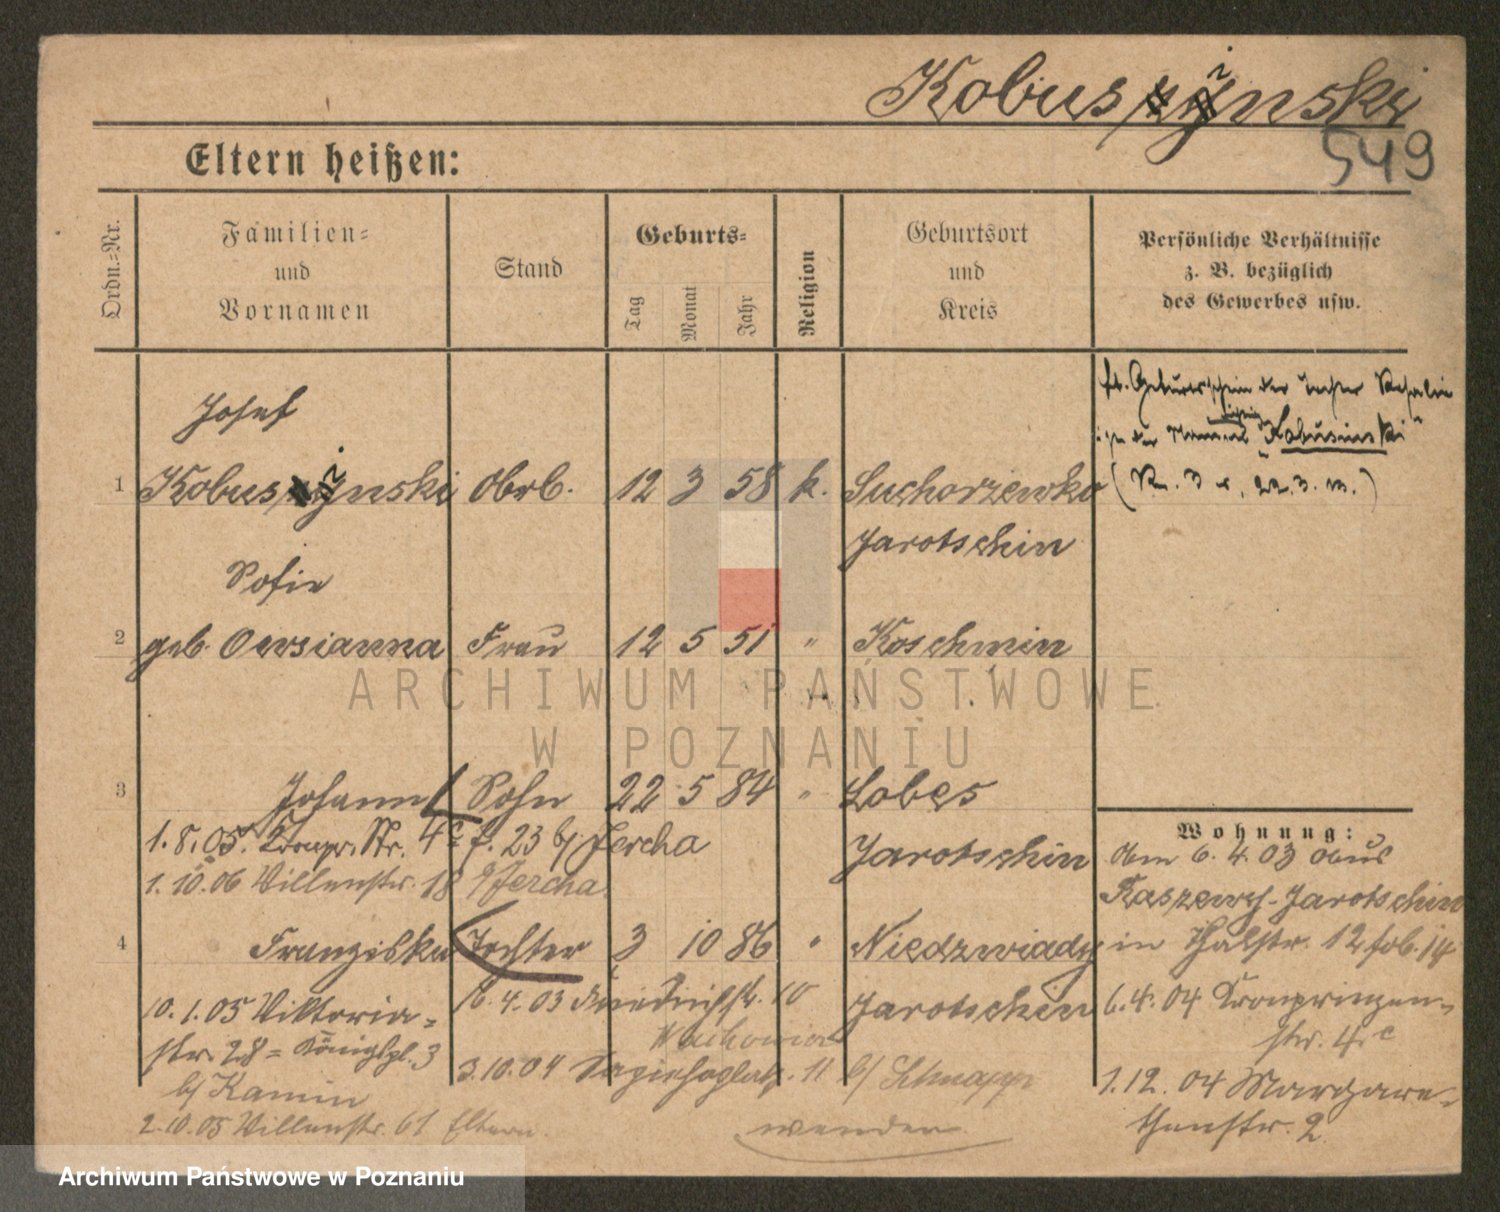 Kobusinski
549
Eltern heißen:
Ordn.-Nr.
Familien-
und
Vornamen
Stand
Geburts-
Tag
Monat
Jahr
Religion
Geburtsort
und
Kreis
Persönliche Verhältnisse
z. B. bezüglich
des Gewerbes usw.
lt. Geburtsschein der Tochter
Kobusinski
Josef
1 Kobusinski Arb. 12 3 58 k. Suchorzewko
Jarotschin
Sofie
2 geb. Owsianna Frau 12 5 51 " Koschmin
3 Johann Sohn 22 5 84 " Lobes
Jarotschin
1.8.05. Kronpr. Str. 4c f. 23 b/ Jercha
1.10.06 Villenstr. 18 b/ Jercha.
4 Franziska Tochter 3 10 86 " Niedzwiady
Jarotschin
10.1.05 Viktoria-
str. 28 = Königspl. 3
b/ Kamin
2.10.05 Villenstr. 61 Eltern.
6.4.03 Friedrichstr. 10
Wachowiak
3.10.04 Sapiehaplatz. 11 b/ Schnapp
Wohnung:
Am 6.4.03 aus
Raszewy-Jarotschin
in Thalstr. 12
6.4.04 Kronprinzen-
str. 4c
1.12.04 Margare-
thenstr. 2
wenden
ARCHIWUM PAŃSTWOWE
W POZNANIU
Archiwum Państwowe w Poznaniu